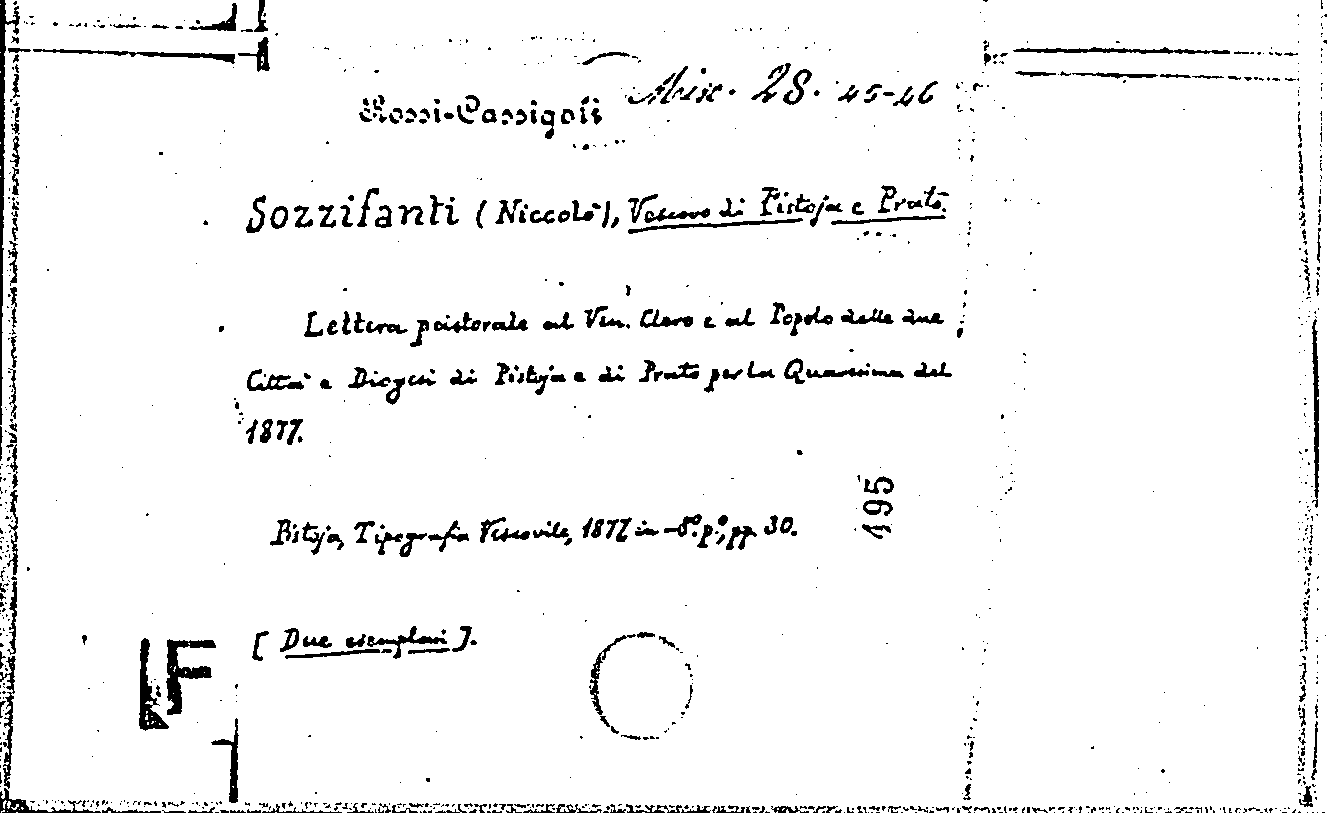 Rossi-Cassigoli Misc. 28. 45-46
Sozzifanti (Niccolò), Vescovo di Pistoja e Prato.
Lettera pastorale al Ven. Clero e al Popolo delle due
Città e Diogesi di Pistoja e di Prato per la Quaresima del
1877.
Pistoja, Tipografia Vescovile, 1877 in-8º. pº., pp. 30.
495
[Due esemplari].